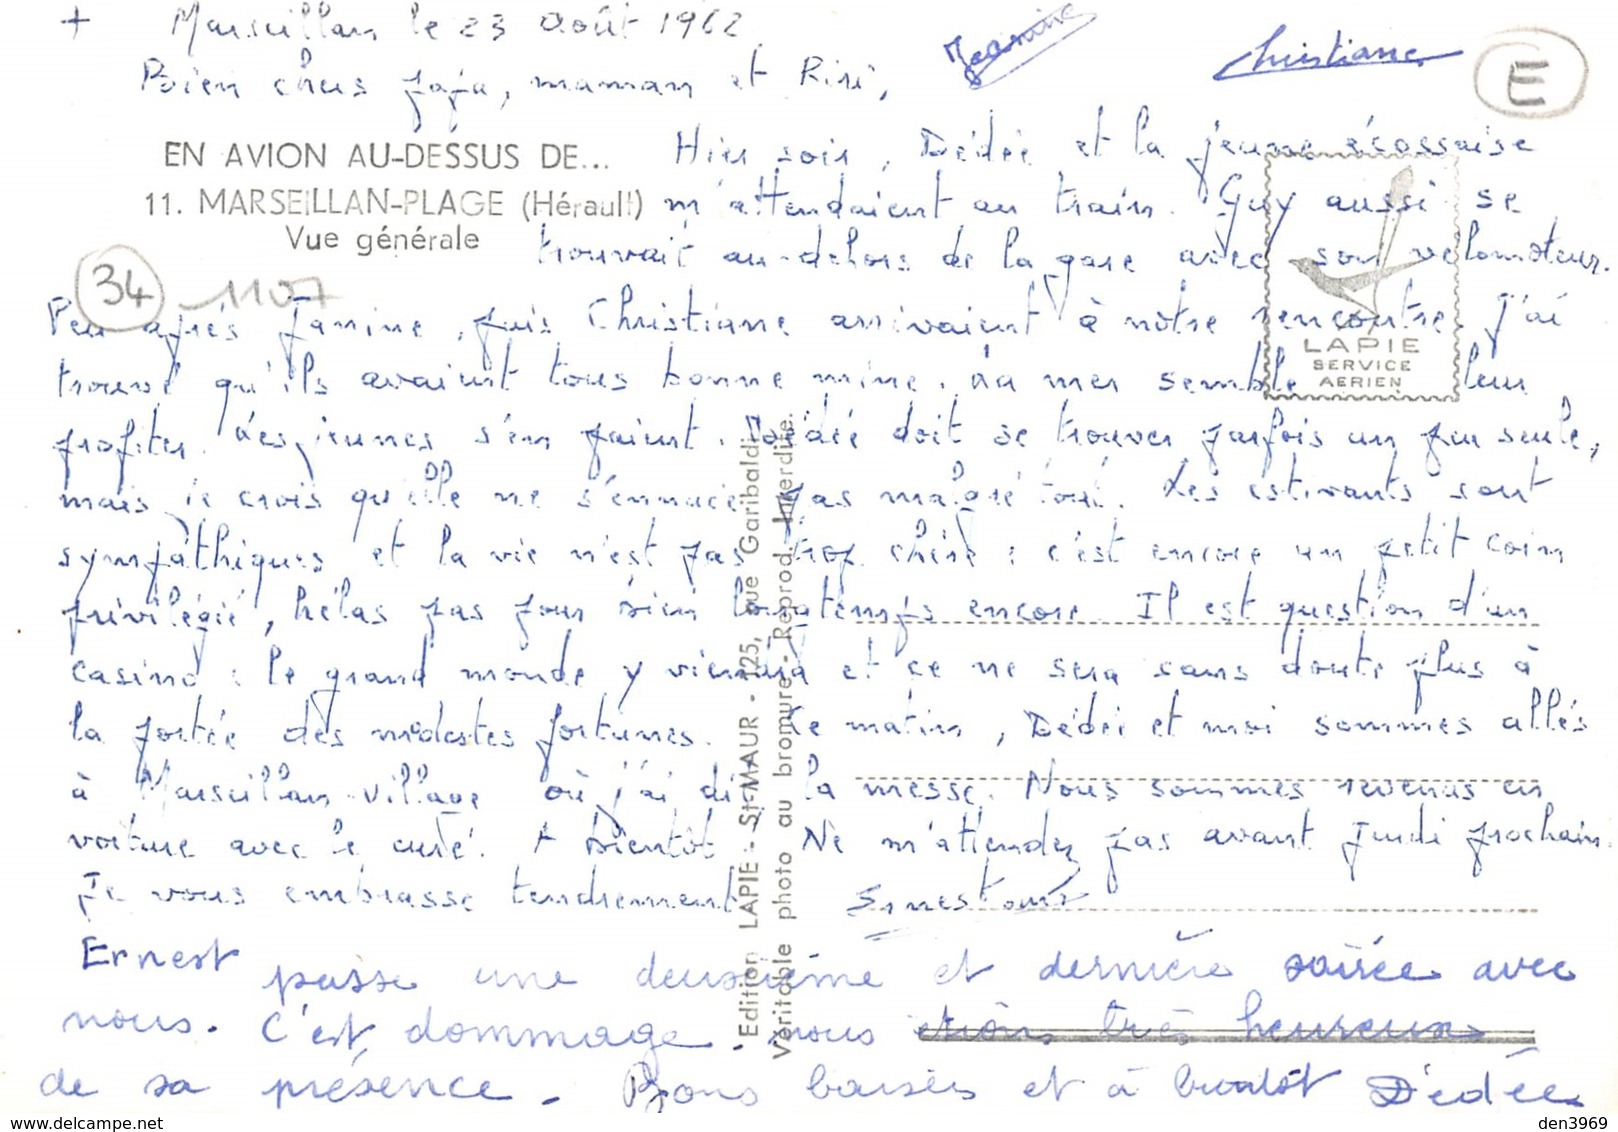 + Marseillan le 23 Août 1962
Jeannine
Christiane
E
Bien chers papa, maman et Riri,
EN AVION AU-DESSUS DE...
11. MARSEILLAN-PLAGE (Hérault)
Vue générale
Hier soir, Dédée et la jeune écossaise
m'attendaient au train. Guy aussi se
trouvait au-dehors de la gare avec son vélomoteur.
34
1107
Peu après Janine, puis Christiane arrivaient à notre rencontre. J'ai
trouvé qu'ils avaient tous bonne mine. La mer semble leur
profiter. Les jeunes s'en paient. Dédée doit se trouver parfois un peu seule,
mais je crois qu'elle ne s'ennuie pas malgré tout. Les estivants sont
sympathiques et la vie n'est pas trop chère : c'est encore un petit coin
privilégié, hélas pas pour bien longtemps encore. Il est question d'un
casino : le grand monde y viendra et ce ne sera sans doute plus à
la portée des modestes fortunes. Ce matin, Dédée et moi sommes allés
à Marseillan-village où j'ai dit la messe. Nous sommes revenus en
voiture avec le curé. A bientôt. Ne m'attendez pas avant Jeudi prochain.
Je vous embrasse tendrement
Ernest passe une deuxième et dernière soirée avec
nous. C'est dommage. nous étions très heureux
de sa présence. Bons baisers et à bientôt Dédée
LAPIE
SERVICE
AERIEN
Edition LAPIE - St-MAUR - 125, rue Garibaldi
Véritable photo au bromure - Reprod. Interdite.
den3969